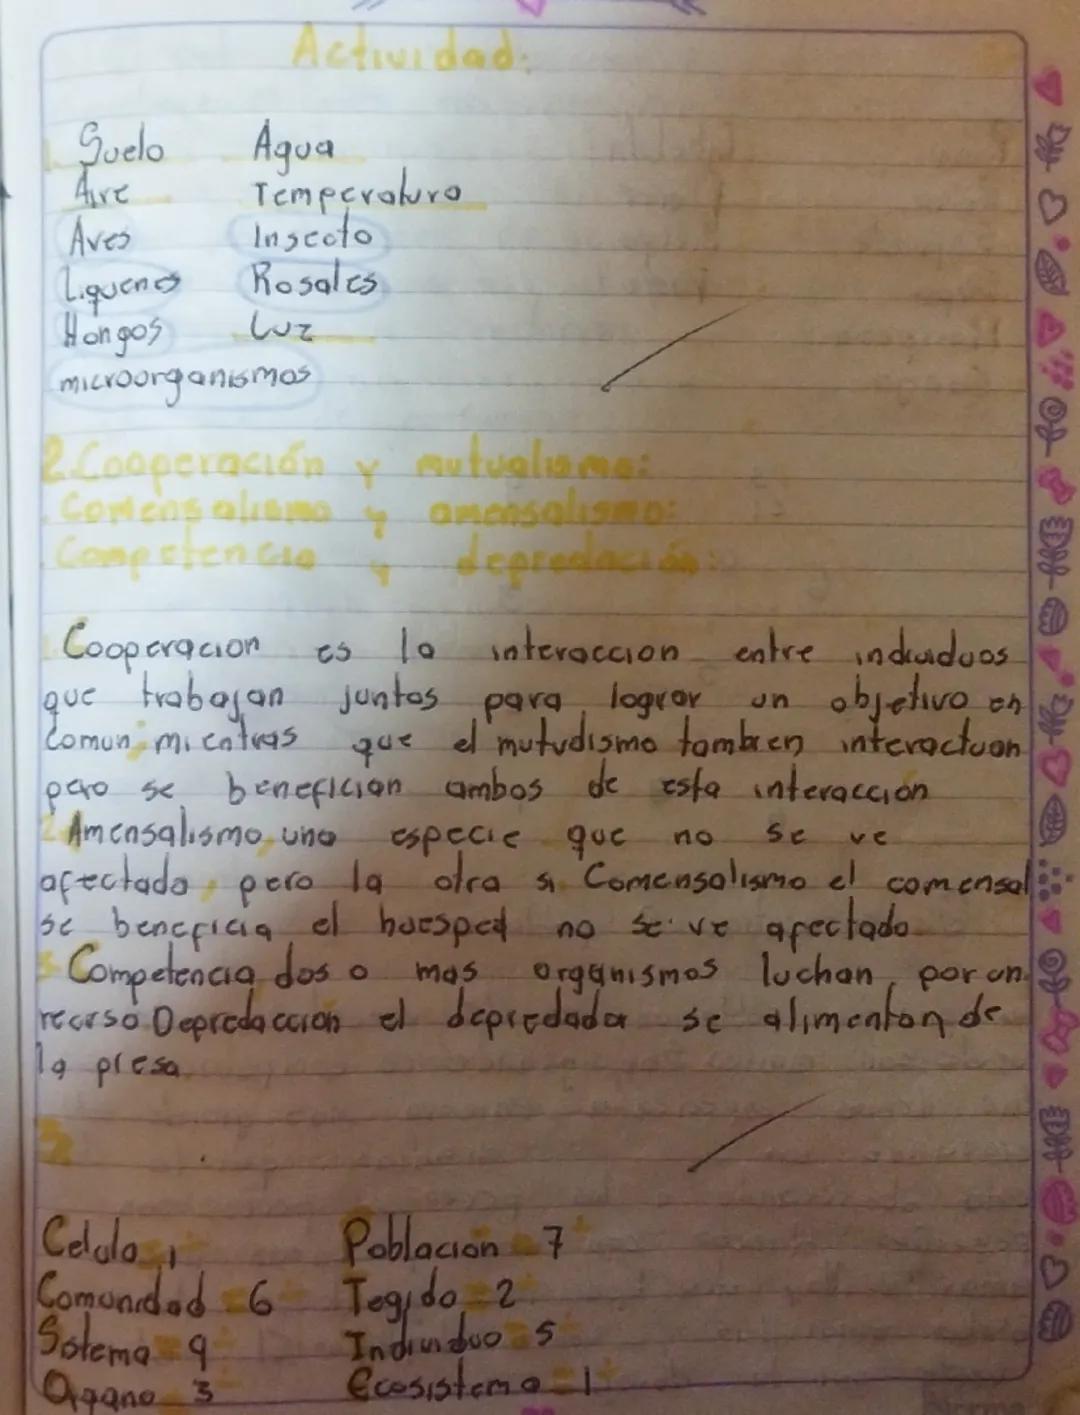 Actividad:
1. Suelo Agua
Aire Temperatura
Aves Insecto
Liquenes Rosales
Hongos Luz
microorganismos
2. Cooperación y mutualismo:
. Comensalismo y amensalismo:
. Competencia y depredación:
1. Cooperacion es la interaccion entre individuos
que trabajan juntos para lograr un objetivo en
Comun; mientras que el mutudismo tambien interactuan
pero se benefician ambos de esta interacción
2. Amensalismo, una especie que no se ve
afectada, pero la otra si Comensalismo el comensal
se beneficia el huesped no se ve afectado
3. Competencia dos o mas organismos luchan por un
recurso Depredaccion el depredador se alimentan de
la presa
3.
Celula 1 Poblacion = 7
Comunidad = 6 Tegido = 2
Sistema = 9 Individuo = 5
Organo 3 Ecosistema = 1
Norma